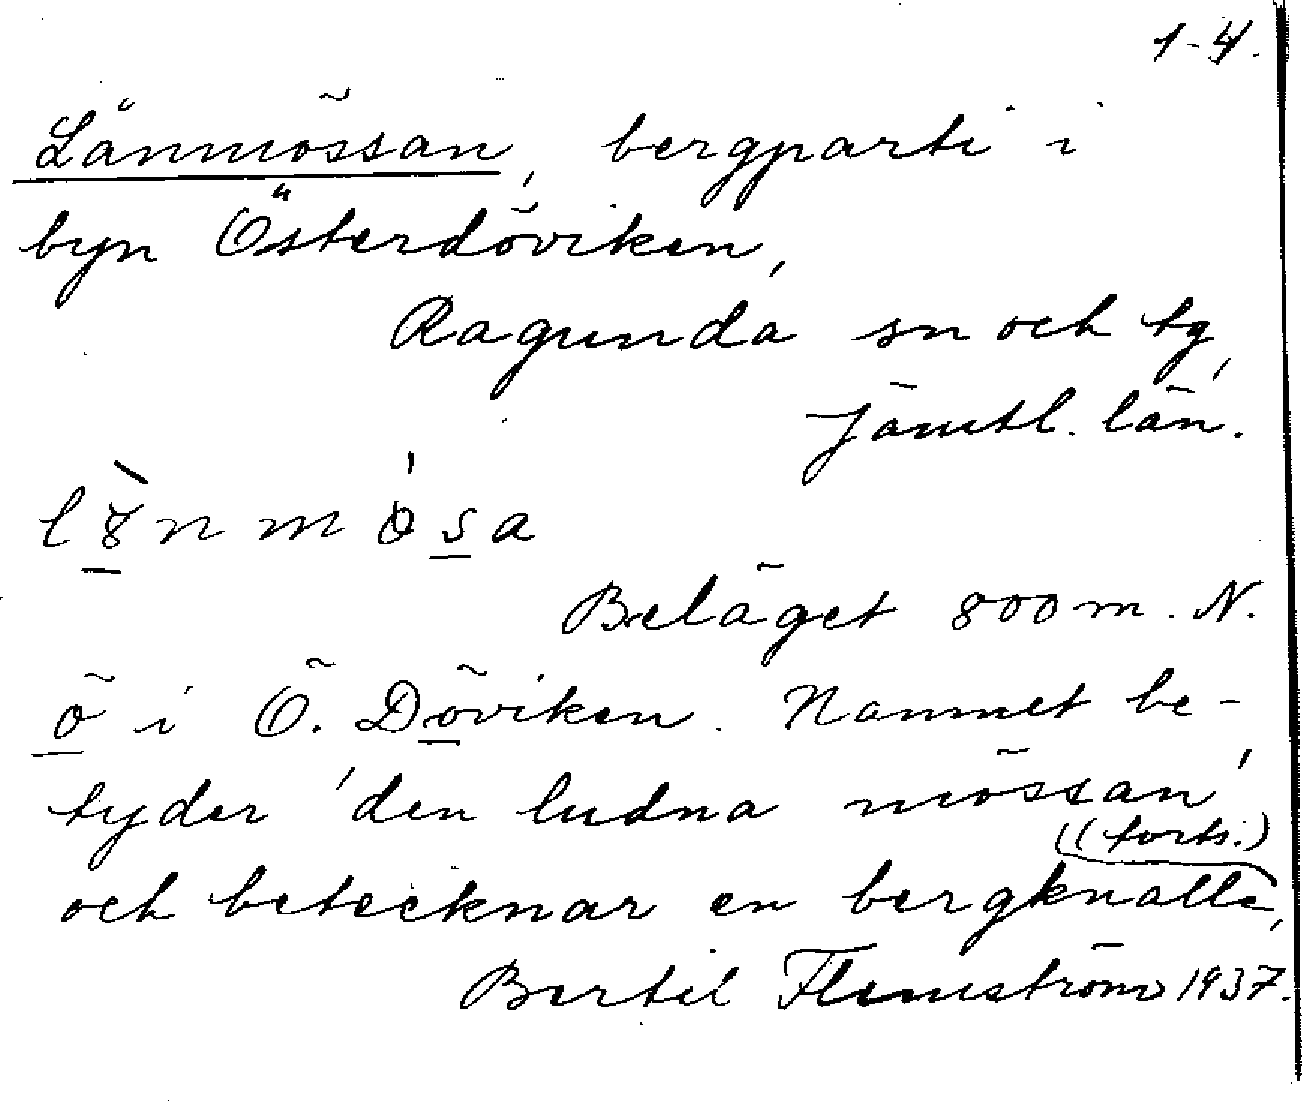 1-4.
Lånmössan, bergparti i
byn Österdöviken,
Ragunda sn och tg,
Jämtl. län.
Beläget 800 m. N.
ö i Ö. Döviken. Namnet be-
tyder 'den ludna mössan'
((forts.)
och betecknar en bergknalle,
Bertil Flemström 1937.